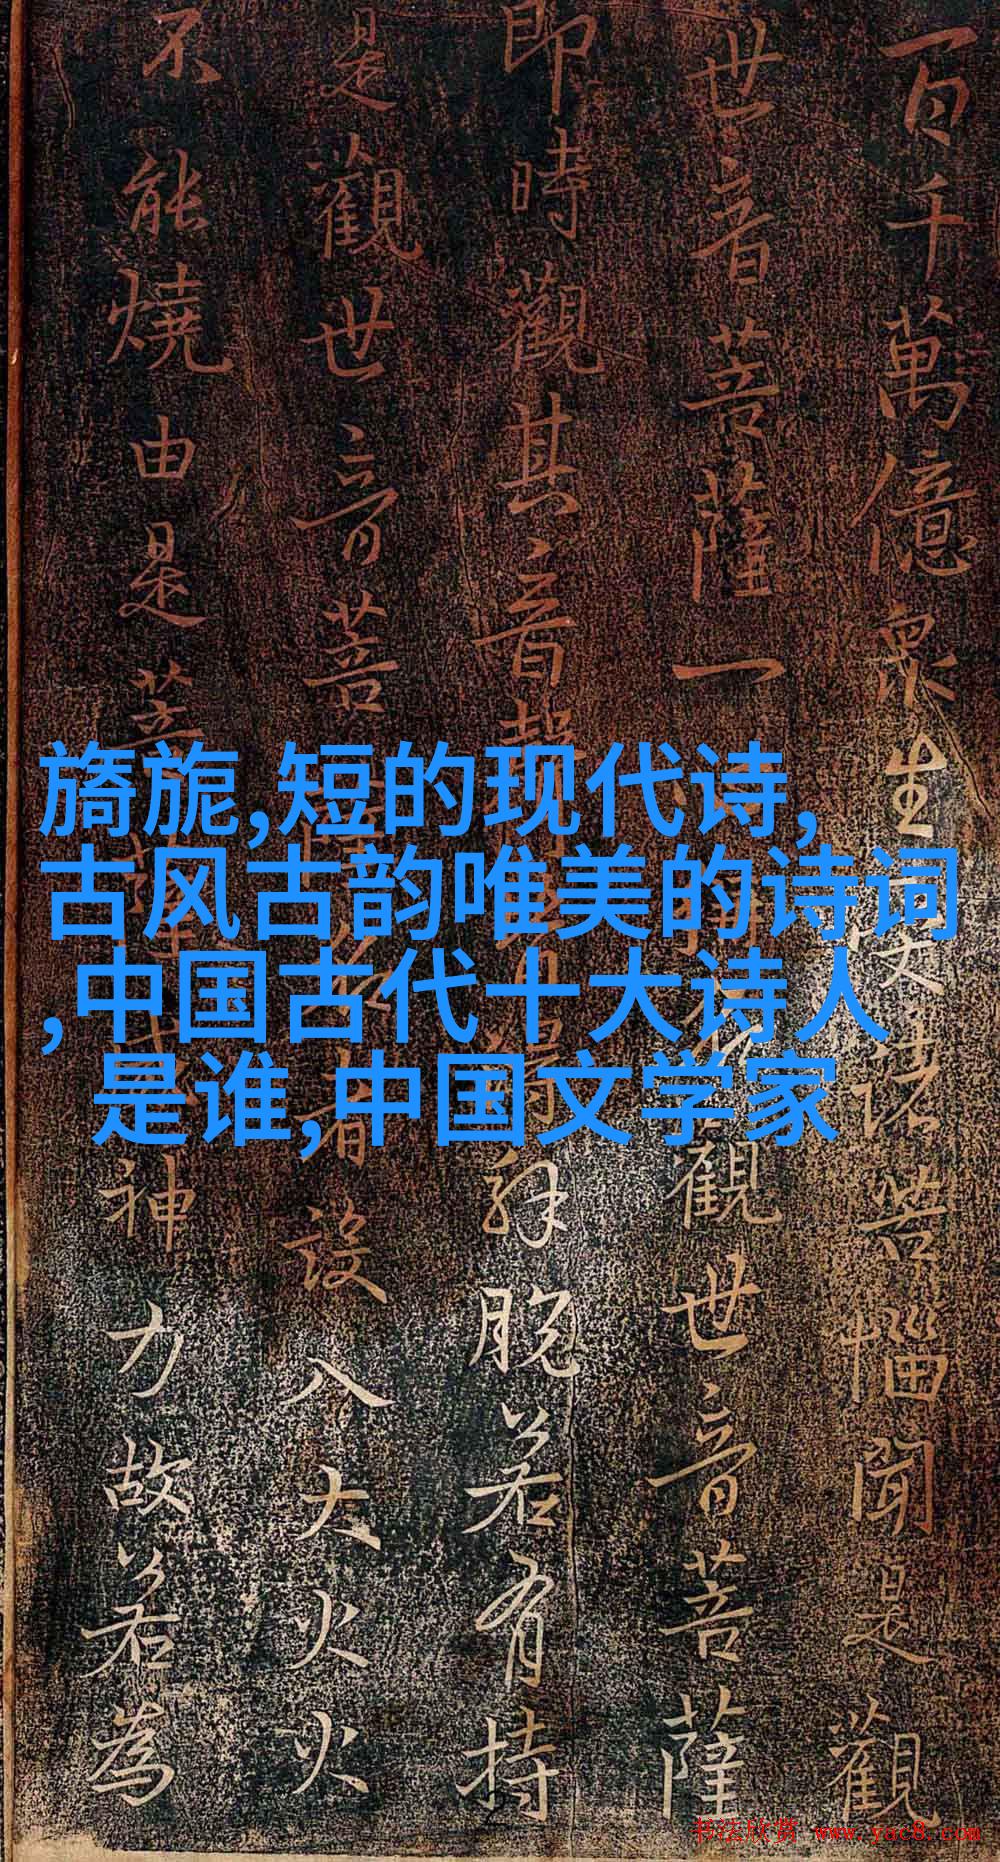 旖旎,短的现代诗,
古风古韵唯美的诗词
,中国古代十大诗人
是谁,中国文学家
百千萬億眾生受諸苦惱聞是觀
世音菩薩一觀世音菩薩
即時觀其音聲解脫若有持
是觀世音菩者設入大火火
不能燒由是菩神力故若為
书法欣赏 www.yac8.com